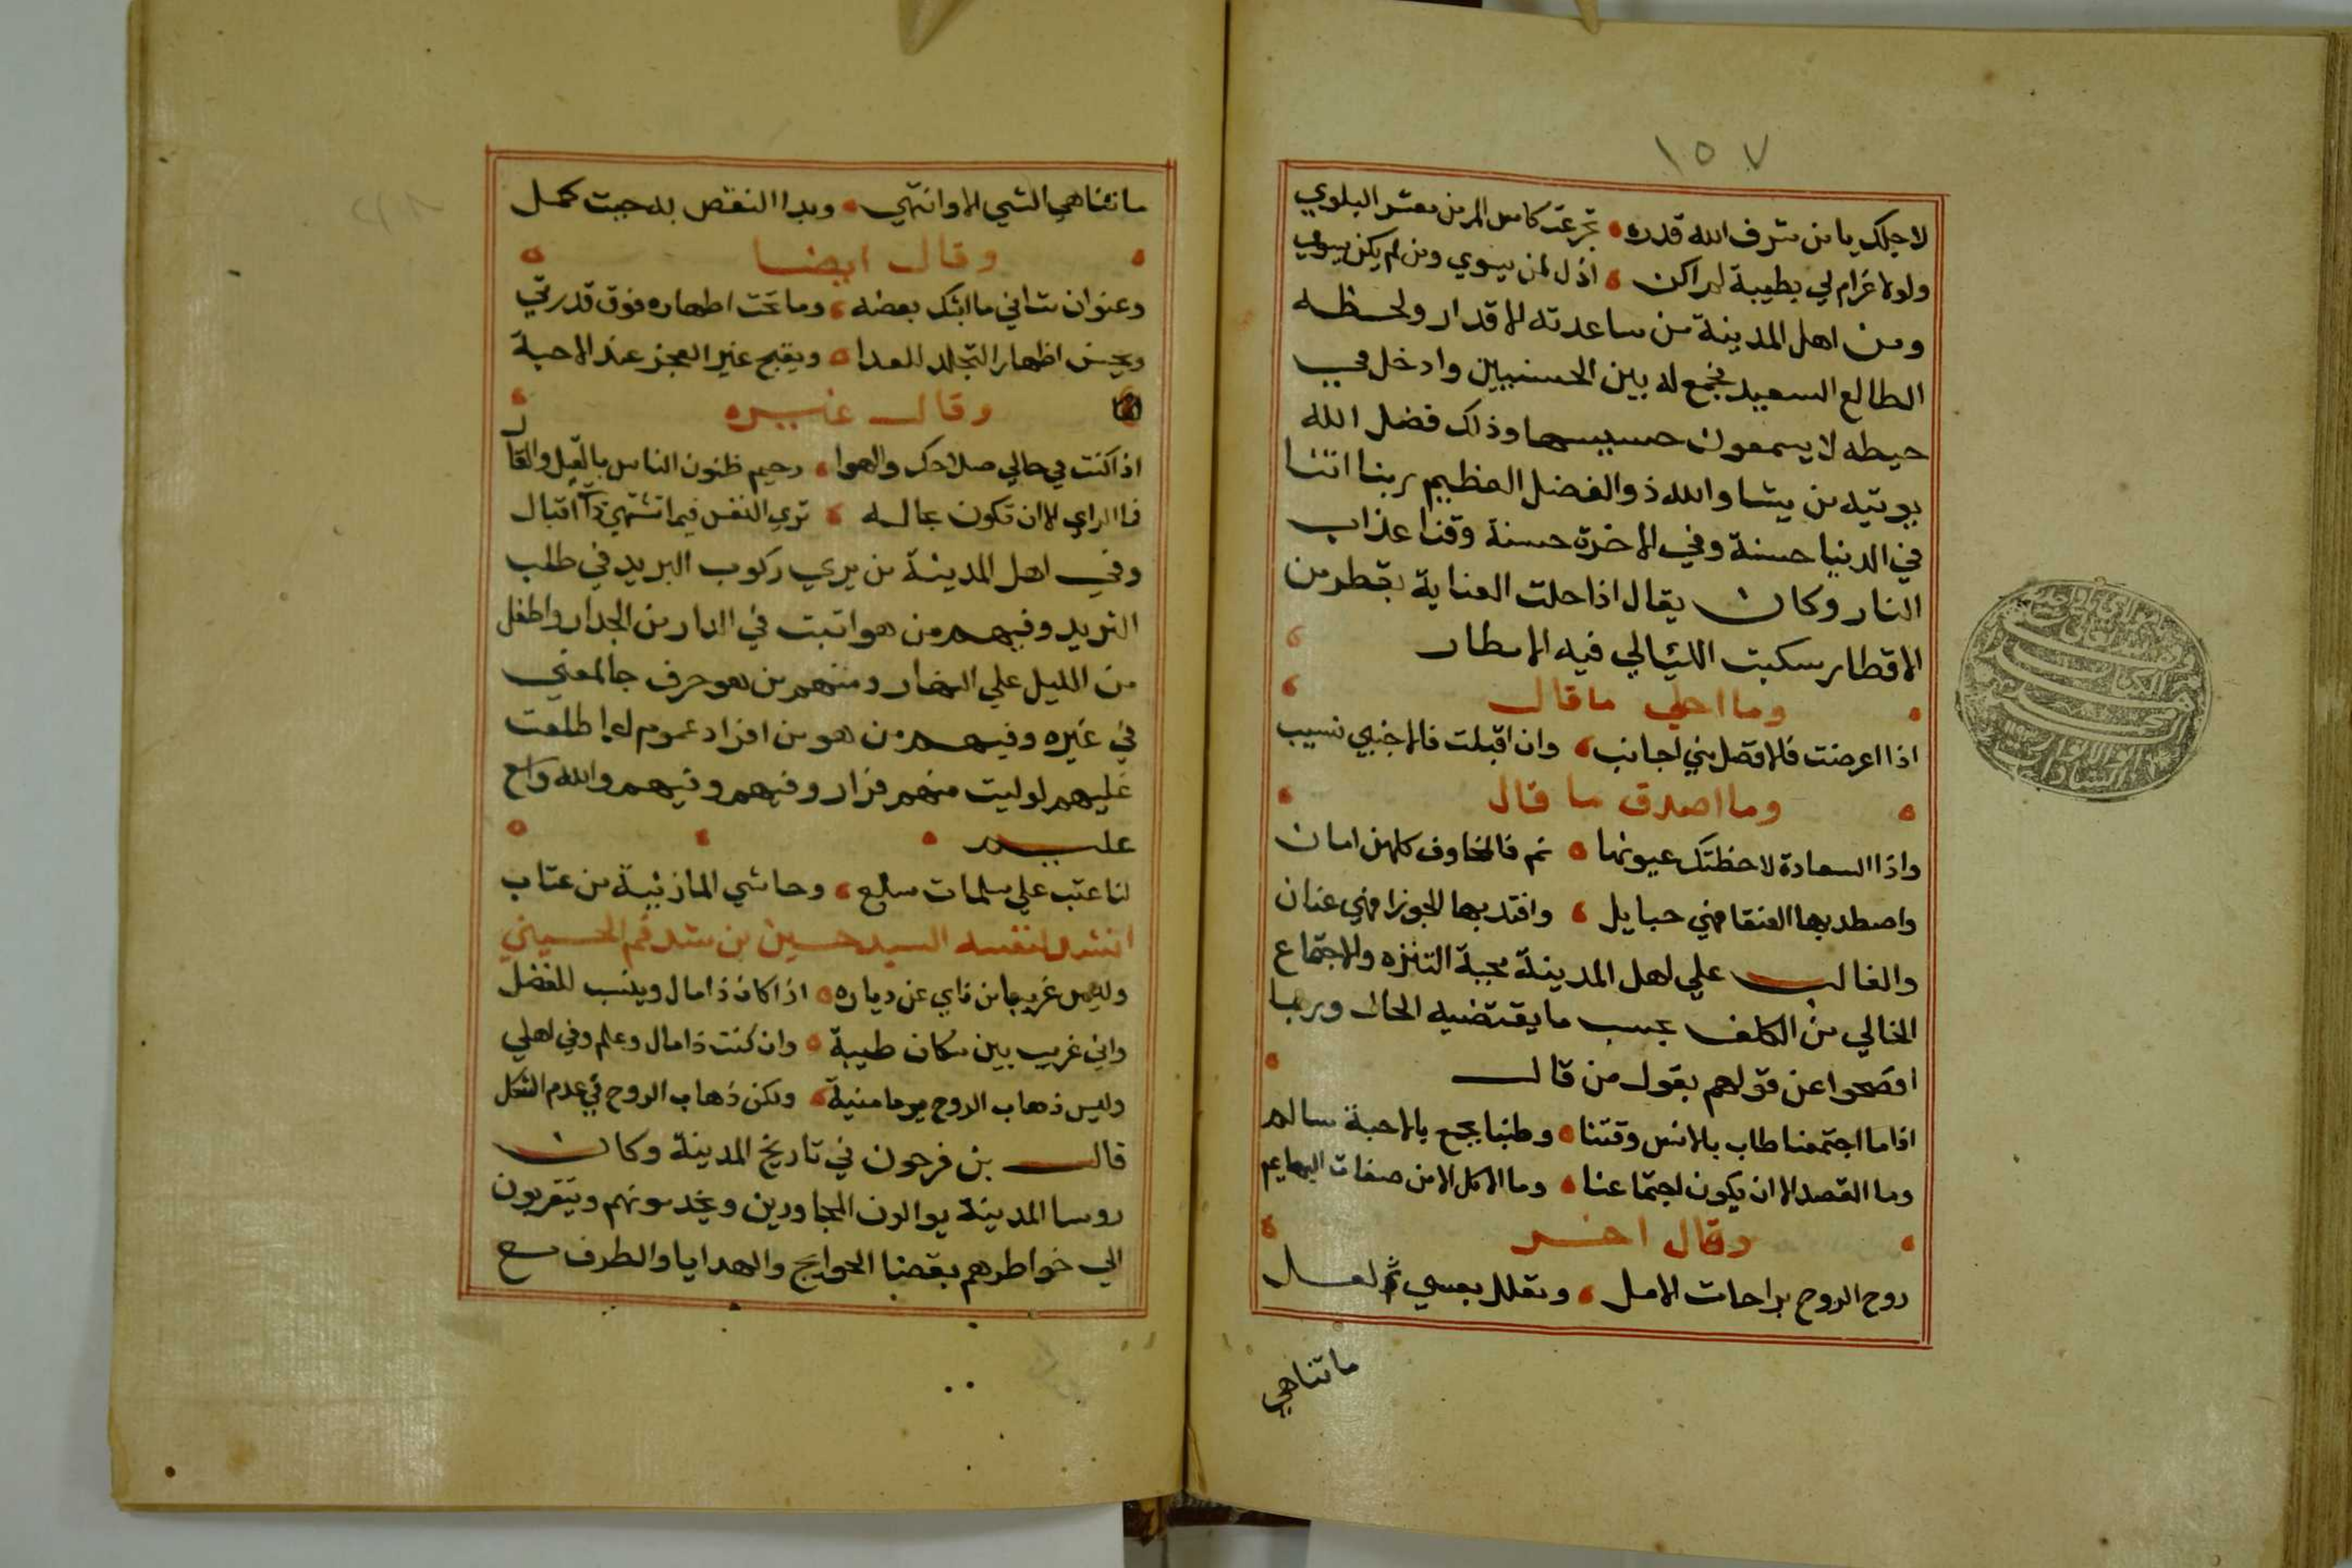 ١٥٧
لاجلك يا من شرف الله قدره تجرعت كاس المر من معشر البلوي
ولولا غرام لي بطيبة لم اكن اذل لمن يسوي ومن لم يكن يسوي
ومن اهل المدينة من ساعدته الاقدار ولحظه
الطالع السعيد فجمع له بين الحسنيين وادخل في
حيطه لا يسمعون حسيسها وذلك فضل الله
يوتيه من يشا والله ذو الفضل العظيم ربنا اتنا
في الدنيا حسنة وفي الاخرة حسنة وقنا عذاب
النار وكان يقال اذا حلت العناية بقطر من
الاقطار سكبت الليالي فيه الامطار
وما احلي ما قال
اذا اعرضت فالافصل مني لجانب وان اقبلت فالاجنبي نسيب
وما اصدق ما قال
واذا السعادة لاحظتك عيونها نم فالمخاوف كلهن امان
واصطد بها العنقا فهني حبايل واقتد بها الجوزا فهني عنان
والغالب علي اهل المدينة محبة التنزه والاجتماع
الخالي من الكلف بحسب ما يقتضيه الحال وربما
افصحوا عن قولهم بقول من قال
اذا ما اجتمعنا طاب بالانس وقتنا وطبنا بجمع بالاحبة سالم
وما القصد الا ان يكون اجتماعنا وما الاكل الا من صفات البهايم
وقال اخر
روح الروح براحات الامل وتعلل بعسي ثم لعل
ما تناهي
ما تناهي الشي الا وانتهي وبدا النقص به حيث كمل
وقال ايضا
وعنوان شاني ما ابثك بعضه وما تحت اظهاره فوق قدرتي
ويحسن اظهار التجلد للعدا ويقبح غير العجز عند الاحبة
وقال غيره
اذا كنت في حالي صلاحك والهوا رحيم ظنون الناس بالقيل والقال
فما الراي الا ان تكون بحاله تري النفس فيما تشتهي ذا اقبال
وفي اهل المدينة من يري ركوب البريد في طلب
الثريد وفيهم من هو اثبت في الدار من الجدار واطفل
من الليل علي النهار ومنهم من هو حرف جا لمعني
في غيره وفيهم من هو من افراد عموم لو اطلعت
عليهم لوليت منهم فرار وفيهم وفيهم والله واسع
عليم
لنا عتب علي سلمات سلع وحاشي المازنية من عتاب
انشد لنفسه السيد حسين بن شدقم الحسيني
وليس غريبا من ناي عن دياره اذا كان ذا مال وينسب للفضل
واني غريب بين سكان طيبة وان كنت ذا مال وعلم وفي اهلي
وليس ذهاب الروح يوما منية ولكن ذهاب الروح في عدم الشكل
قال بن فرحون في تاريخ المدينة وكان
روسا المدينة يوالون المجاورين ويخدمونهم ويتقربون
الي خواطرهم بقضا الحوايج والهدايا والطرف مع